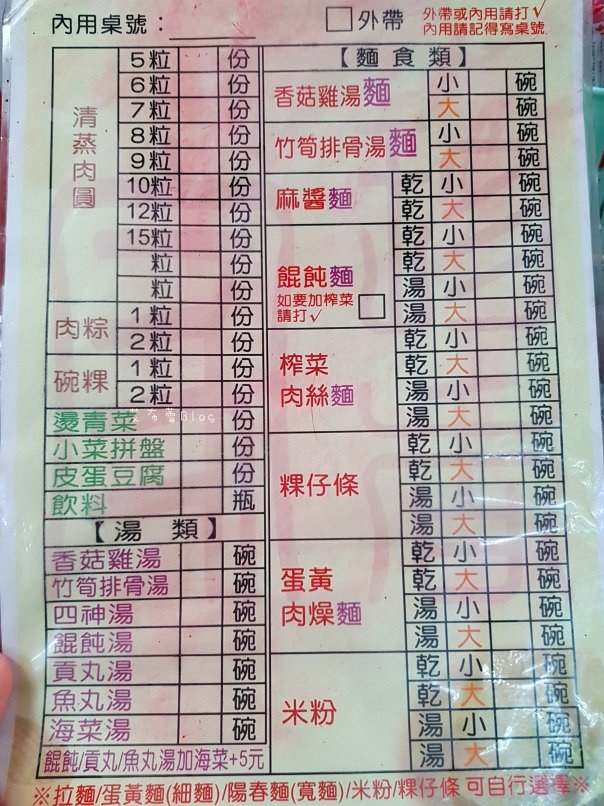 內用桌號：
外帶
外帶或內用請打√
內用請記得寫桌號.
清蒸肉圓
5粒 份
6粒 份
7粒 份
8粒 份
9粒 份
10粒 份
12粒 份
15粒 份
粒 份
粒 份
肉粽
1粒 份
2粒 份
碗粿
1粒 份
2粒 份
燙青菜 份
小菜拼盤 份
皮蛋豆腐 份
飲料 瓶
【湯 類】
香菇雞湯 碗
竹筍排骨湯 碗
四神湯 碗
餛飩湯 碗
貢丸湯 碗
魚丸湯 碗
海菜湯 碗
餛飩/貢丸/魚丸湯加海菜+5元
【麵食類】
香菇雞湯麵
小 碗
大 碗
竹筍排骨湯麵
小 碗
大 碗
麻醬麵
乾 小 碗
乾 大 碗
餛飩麵
如要加榨菜
請打√
乾 小 碗
乾 大 碗
湯 小 碗
湯 大 碗
榨菜
肉絲麵
乾 小 碗
乾 大 碗
湯 小 碗
湯 大 碗
粿仔條
乾 小 碗
乾 大 碗
湯 小 碗
湯 大 碗
蛋黃
肉燥麵
乾 小 碗
乾 大 碗
湯 小 碗
湯 大 碗
米粉
乾 小 碗
乾 大 碗
湯 小 碗
湯 大 碗
※拉麵/蛋黃麵(細麵)/陽春麵(寬麵)/米粉/粿仔條 可自行選擇※